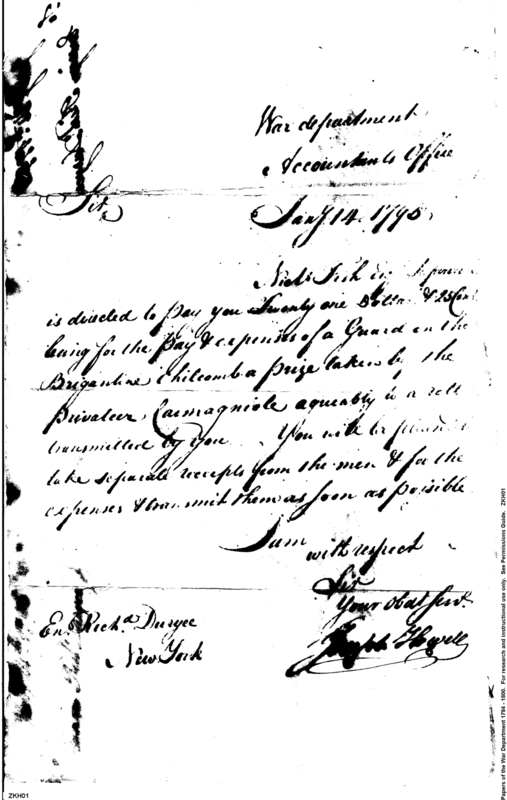 War department
Accountants Office
Sir,
Jany 14. 1795
Nichs Fish
is directed to pay you Twenty one Dollars & 25 Cents
being for the Pay & expenses of a Guard on the
Brigantine Chilcomb a prize taken by the
Privateer Carmagniole agreeably to a roll
transmitted by you. You will be pleased to
take separate receipts from the men & for the
expenses & transmit them as soon as possible
I am
with respect
Sir
Your Obdt Servt
Joseph Howell
Ens Richd Duryee
New York
ZKH01
Papers of the War Department 1784 - 1800. For research and instructional use only. See Permissions Guide. ZKH01